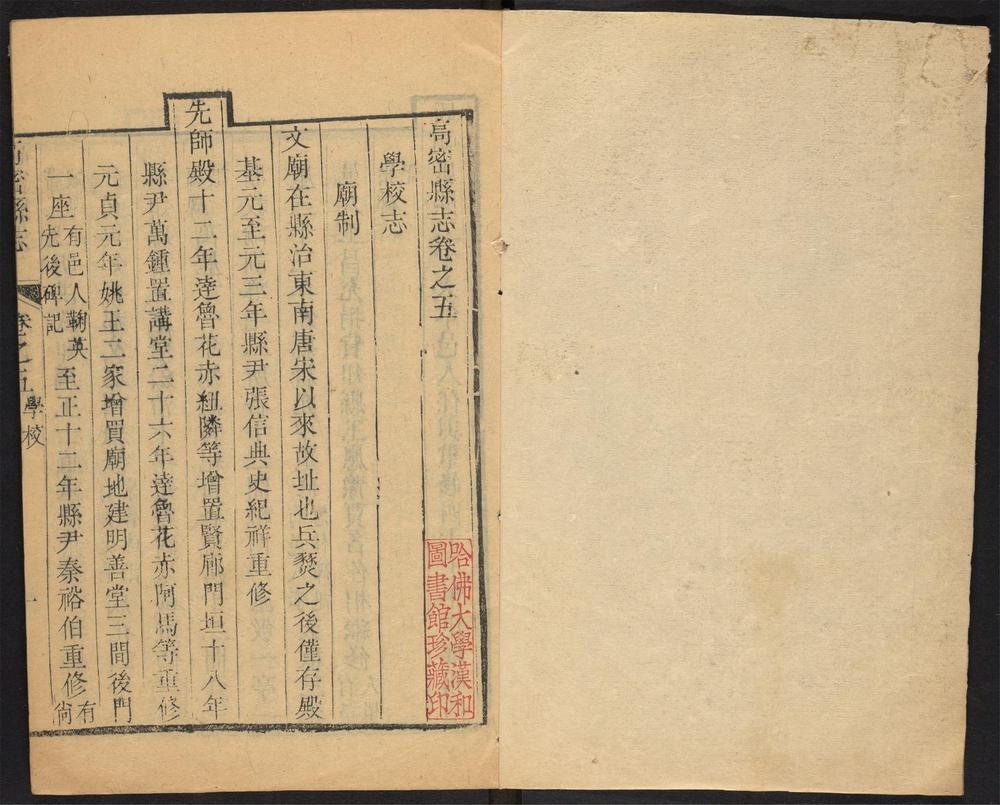 高密縣志卷之五
學校志
廟制
文廟在縣治東南唐宋以來故址也兵燹之後僅存殿
基元至元三年縣尹張信典史紀祥重修
先師殿十二年達魯花赤紐隣等增置賢廊門垣十八年
縣尹萬鍾置講堂二十六年達魯花赤阿馬等重修
元貞元年姚王二家增買廟地建明善堂三間後門
一座有邑人鞠英先後碑記至正十二年縣尹秦裕伯重修有尚
高密縣志 卷之五 學校 一
哈佛大學漢和
圖書館珍藏印